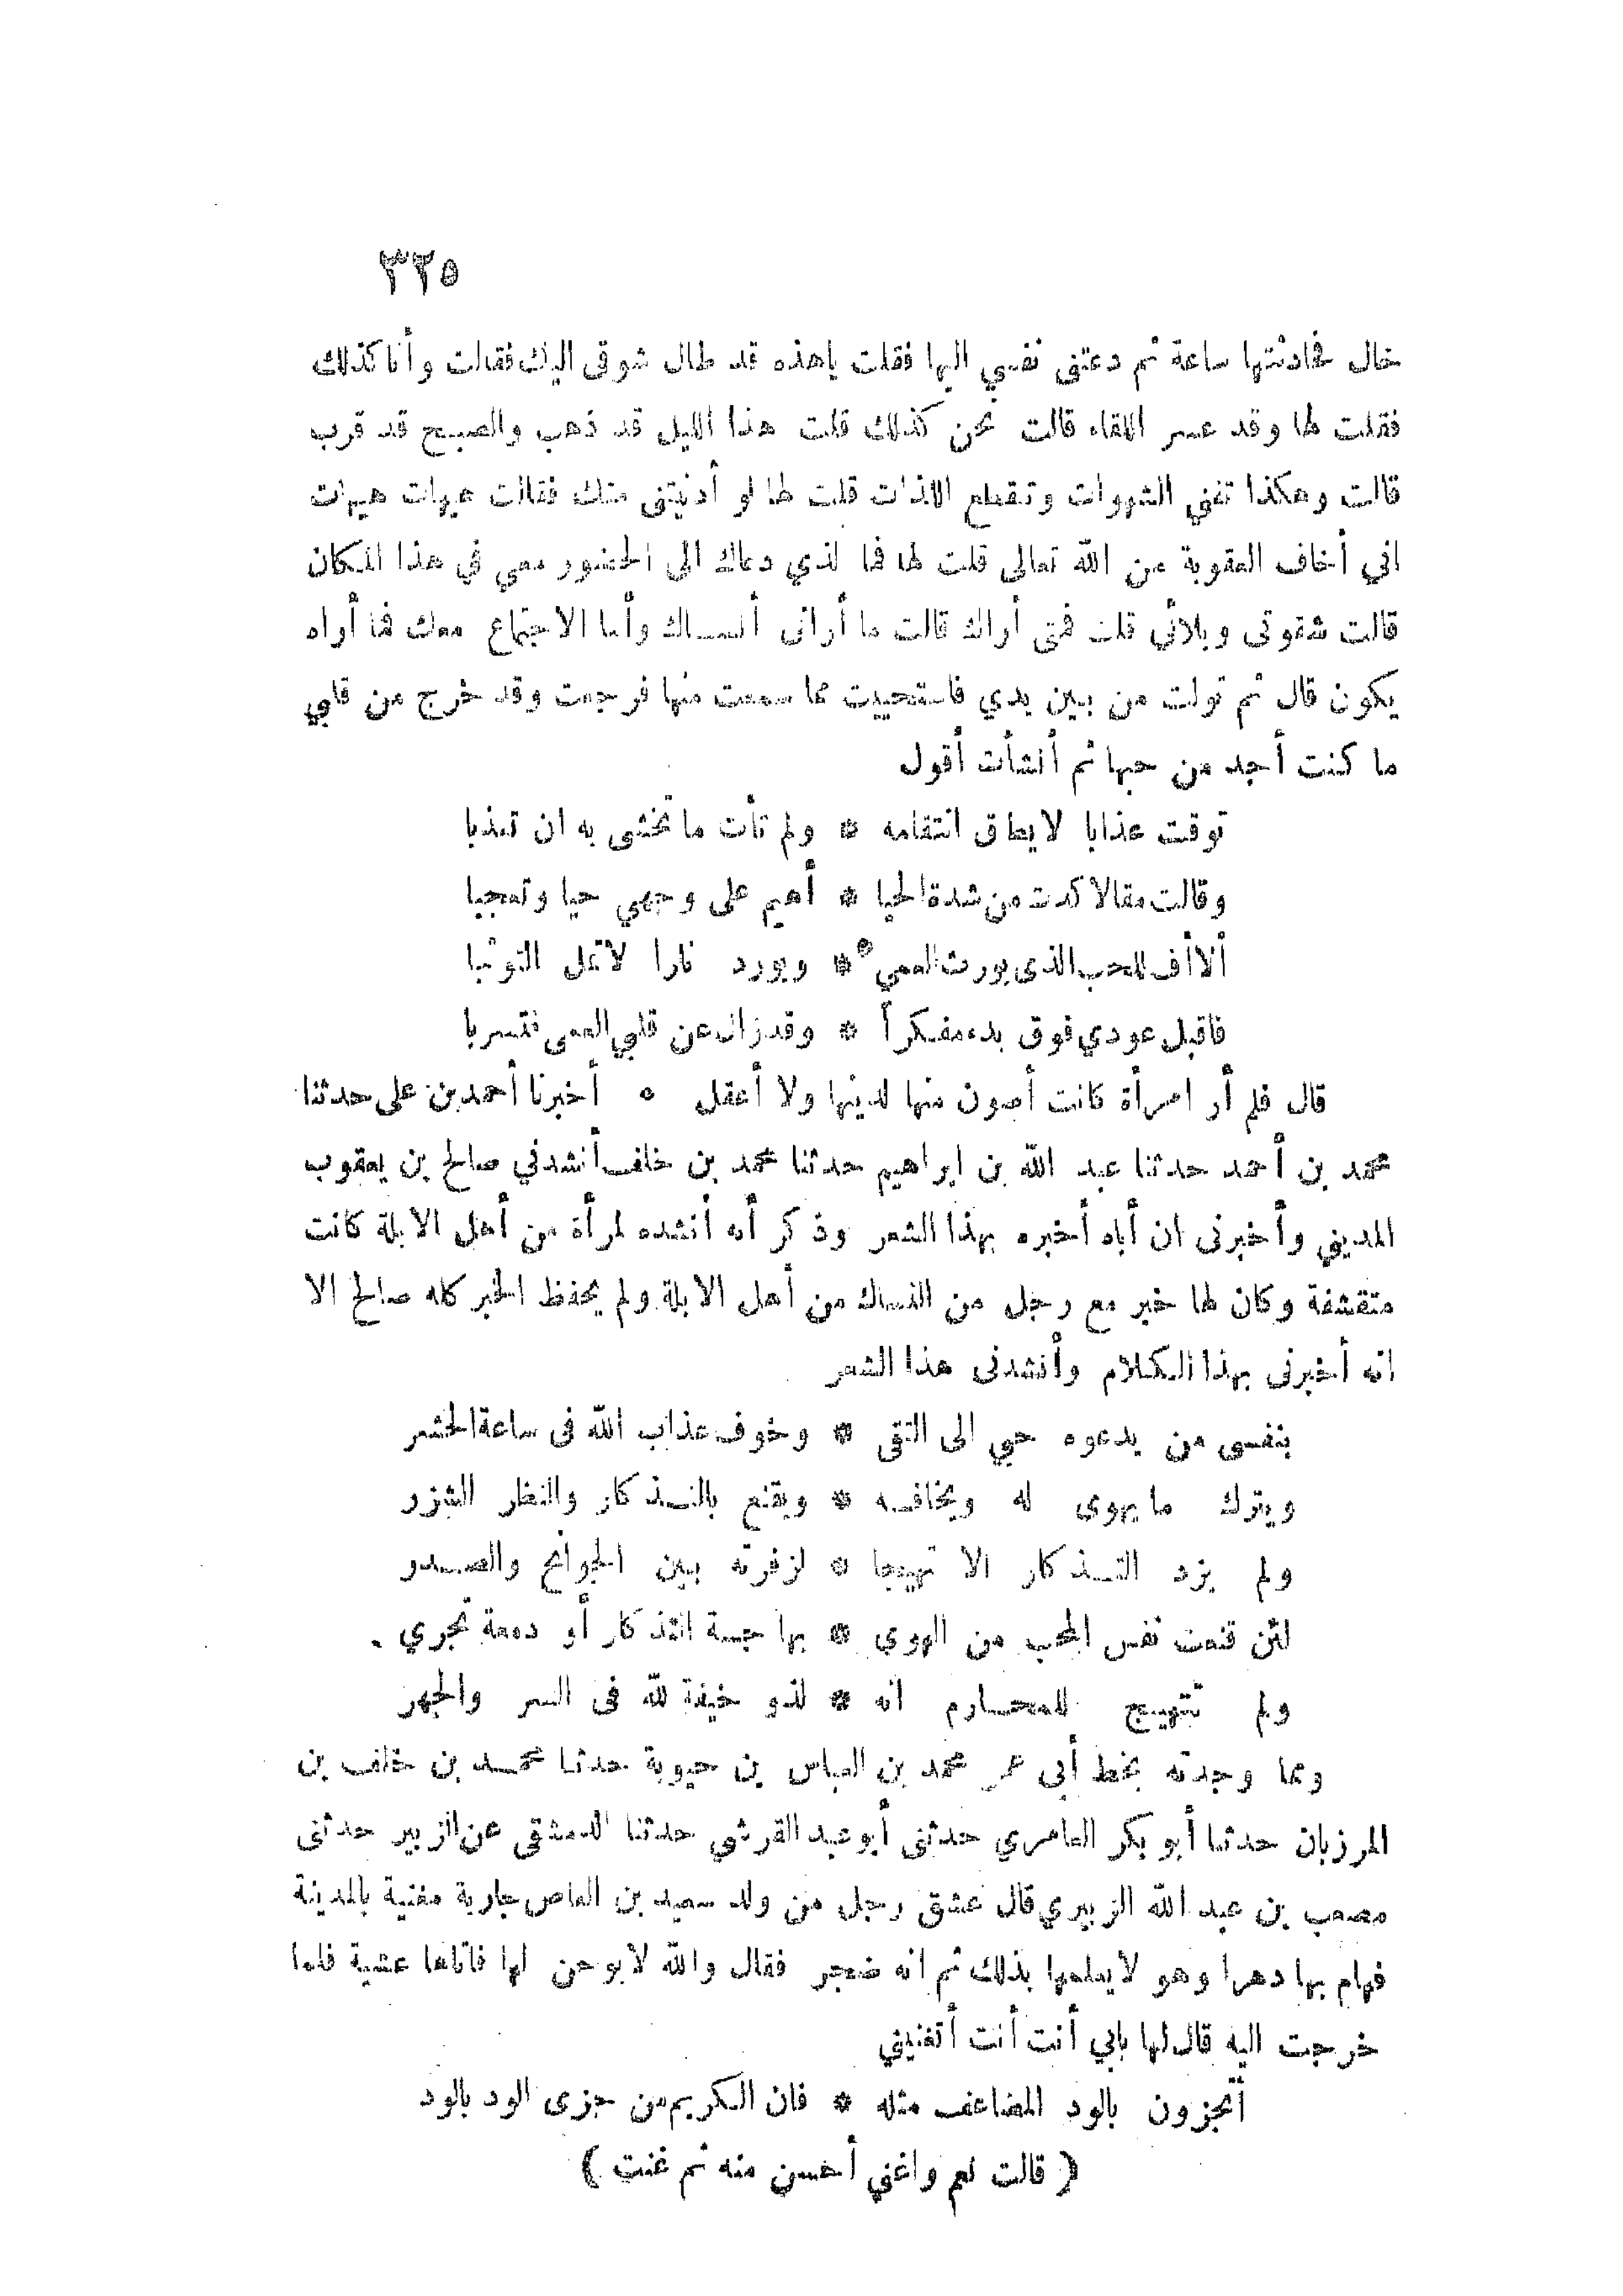 ٣٢٥
خال فحادثتها ساعة ثم دعتني نفسي اليها فقلت ياهذه قد طال شوقي اليك فقالت وأنا كذلك
فقلت لها وقد عسر اللقاء قالت نحن كذلك قلت هذا الليل قد ذهب والصبح قد قرب
قالت وهكذا تفني الشهوات وتنقطع اللذات قلت لها لو أدنيتني منك فقالت هيهات هيهات
اني أخاف العقوبة من الله تعالى قلت لها فما لذي دعاك الى الحضور معي في هذا المكان
قالت شقوتى وبلائي قلت فمتى أراك قالت ما أرانى أنساك وأما الاجتماع معك فما أراه
يكون قال ثم تولت من بين يدي فاستحييت مما سمعت منها فرجعت وقد خرج من قلبي
ما كنت أجد من حبها ثم أنشأت أقول
توقت عذابا لايطاق انتقامه * ولم تأت ما تخشى به ان تعذبا
وقالت مقالا كدت من شدة الحيا * أهيم على وجهي حيا وتعجبا
ألا أف للحب الذى يورث العمي * ويورد نارا لا تمل التوثبا
فاقبل عودي فوق بدء مفكراً * وقد زال عن قلبي العمى فتسربا
قال فلم أر امرأة كانت أصون منها لدينها ولا أعقل ٥ أخبرنا أحمد بن على حدثنا
محمد بن أحمد حدثنا عبد الله بن ابراهيم حدثنا محمد بن خلف أنشدني صالح بن يعقوب
المديني وأخبرنى ان أباه أخبره بهذا الشعر وذكر أنه أنشده لمرأة من أهل الابلة كانت
متقشفة وكان لها خبر مع رجل من النساك من أهل الابلة ولم يحفظ الخبر كله صالح الا
انه أخبرنى بهذا الكلام وأنشدنى هذا الشعر
بنفسى من يدعوه حبي الى التقى * وخوف عذاب الله فى ساعة الحشر
ويترك ما يهوى له ويخافه * ويقنع بالتذكار والنظر الشزر
ولم يزد التذكار الا تهيجا * لزفرته بين الجوانح والصدر
لئن قنعت نفس المحب من الهوى * بها جسة التذكار أو دمعة تجري
ولم تتهيج للمحارم انه * لذو خيفة لله فى السر والجهر
ومما وجدته بخط أبى عمر محمد بن العباس بن حيوية حدثنا محمد بن خلف بن
المرزبان حدثنا أبو بكر العامري حدثنى أبو عبد القرشي حدثنا الدمشقى عن الزبير حدثنى
مصعب بن عبد الله الزبيري قال عشق رجل من ولد سعيد بن العاص جارية مغنية بالمدينة
فهام بها دهرا وهو لايعلمها بذلك ثم انه ضجر فقال والله لابوحن لها فاتاها عشية فلما
خرجت اليه قال لها بابي أنت أنت أتغنيني
أتجزون بالود المضاعف مثله * فان الكريم من جزى الود بالود
( قالت نعم واغني أحسن منه ثم غنت )